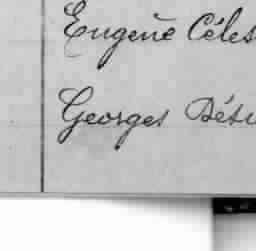 Eugène Céles
Georges Dési